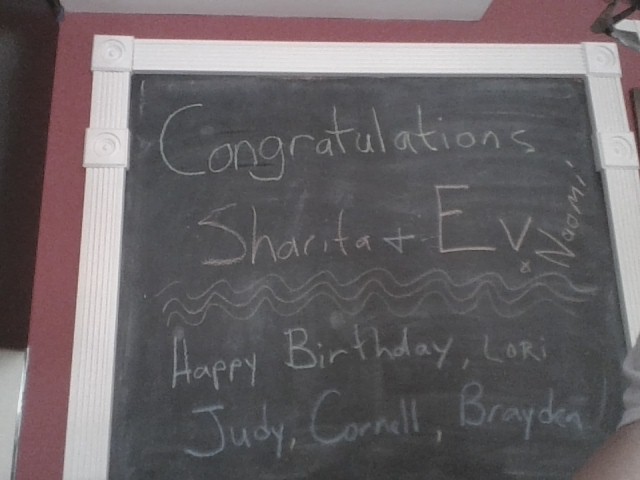 Congratulations
Sharita + Ev
& Naomi
Happy Birthday, LORi
Judy, Cornell, Brayden